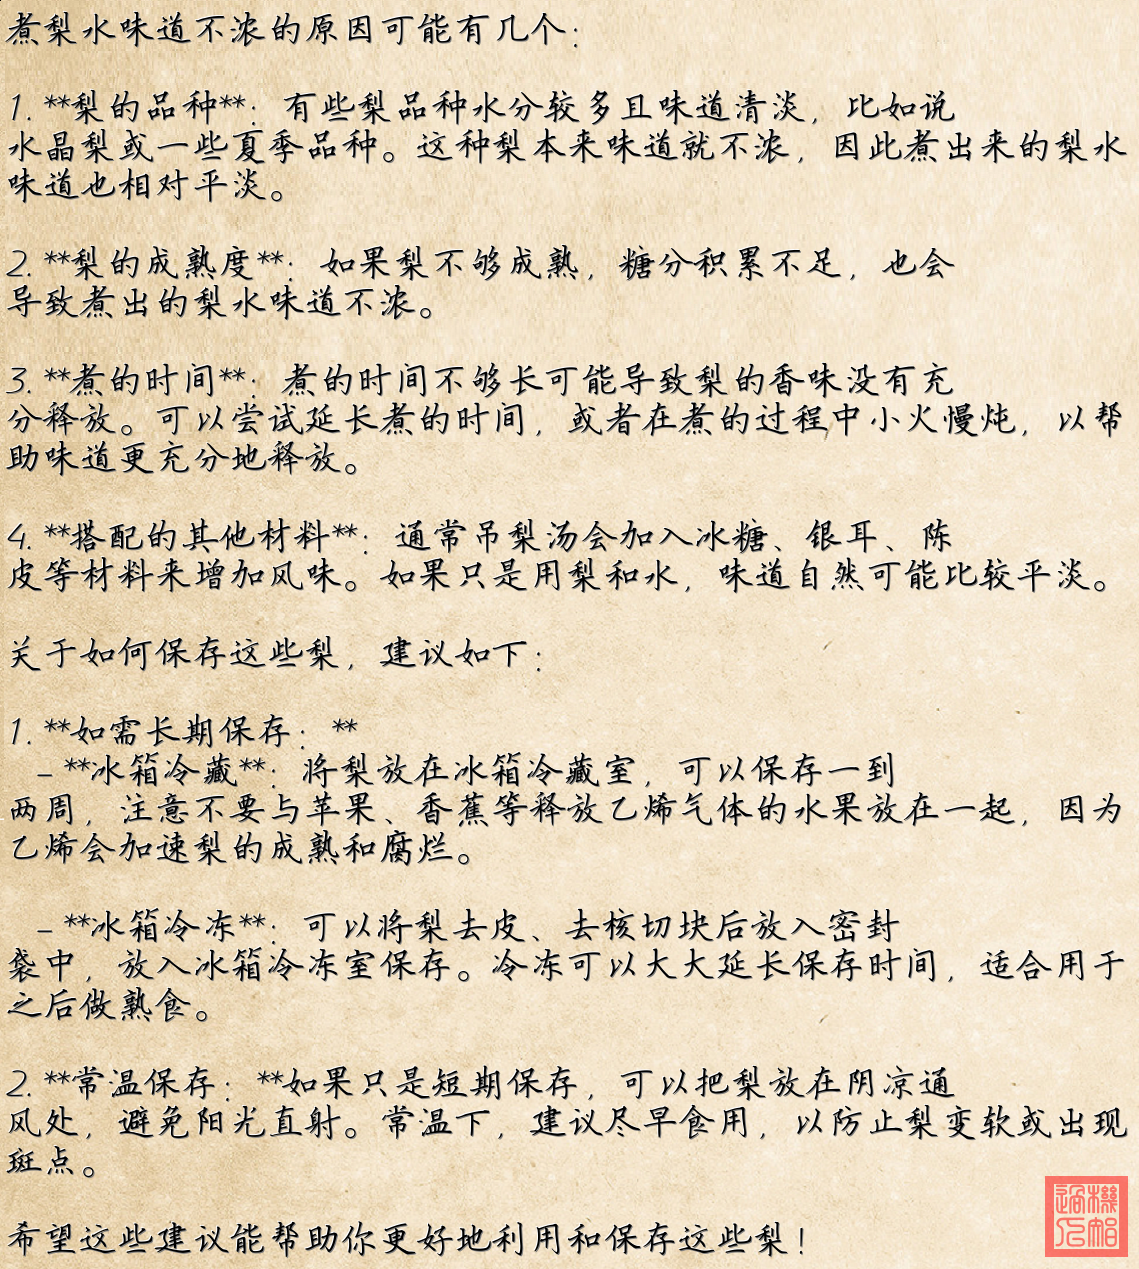 煮梨水味道不浓的原因可能有几个：
1. **梨的品种**：有些梨品种水分较多且味道清淡，比如说
水晶梨或一些夏季品种。这种梨本来味道就不浓，因此煮出来的梨水
味道也相对平淡。
2. **梨的成熟度**：如果梨不够成熟，糖分积累不足，也会
导致煮出的梨水味道不浓。
3. **煮的时间**：煮的时间不够长可能导致梨的香味没有充
分释放。可以尝试延长煮的时间，或者在煮的过程中小火慢炖，以帮
助味道更充分地释放。
4. **搭配的其他材料**：通常吊梨汤会加入冰糖、银耳、陈
皮等材料来增加风味。如果只是用梨和水，味道自然可能比较平淡。
关于如何保存这些梨，建议如下：
1. **如需长期保存：**
- **冰箱冷藏**：将梨放在冰箱冷藏室，可以保存一到
两周，注意不要与苹果、香蕉等释放乙烯气体的水果放在一起，因为
乙烯会加速梨的成熟和腐烂。
- **冰箱冷冻**：可以将梨去皮、去核切块后放入密封
袋中，放入冰箱冷冻室保存。冷冻可以大大延长保存时间，适合用于
之后做熟食。
2. **常温保存：**如果只是短期保存，可以把梨放在阴凉通
风处，避免阳光直射。常温下，建议尽早食用，以防止梨变软或出现
斑点。
希望这些建议能帮助你更好地利用和保存这些梨！